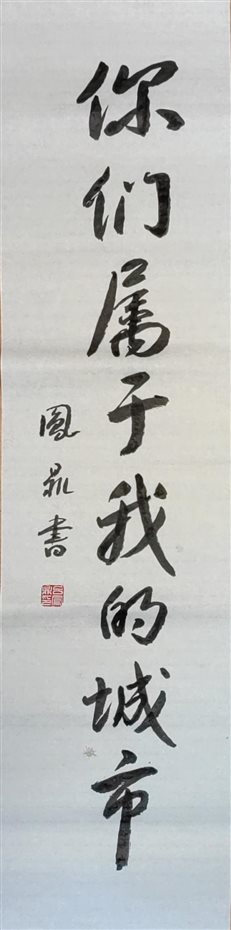 你们属于我的城市
鳳鼎書